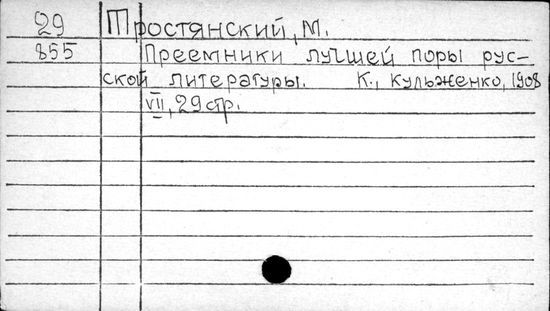 29 Тростянский, М.
855 Преемники лучшей поры рус-
ской литературы. К., Кульженко, 1908
VII, 29 стр.